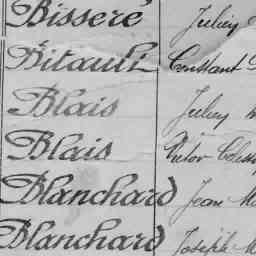 Bisseré Jule
Bitauli Constant
Blais Jule
Blais Victor Celest
Blanchard Jean M
Blanchard Joseph M